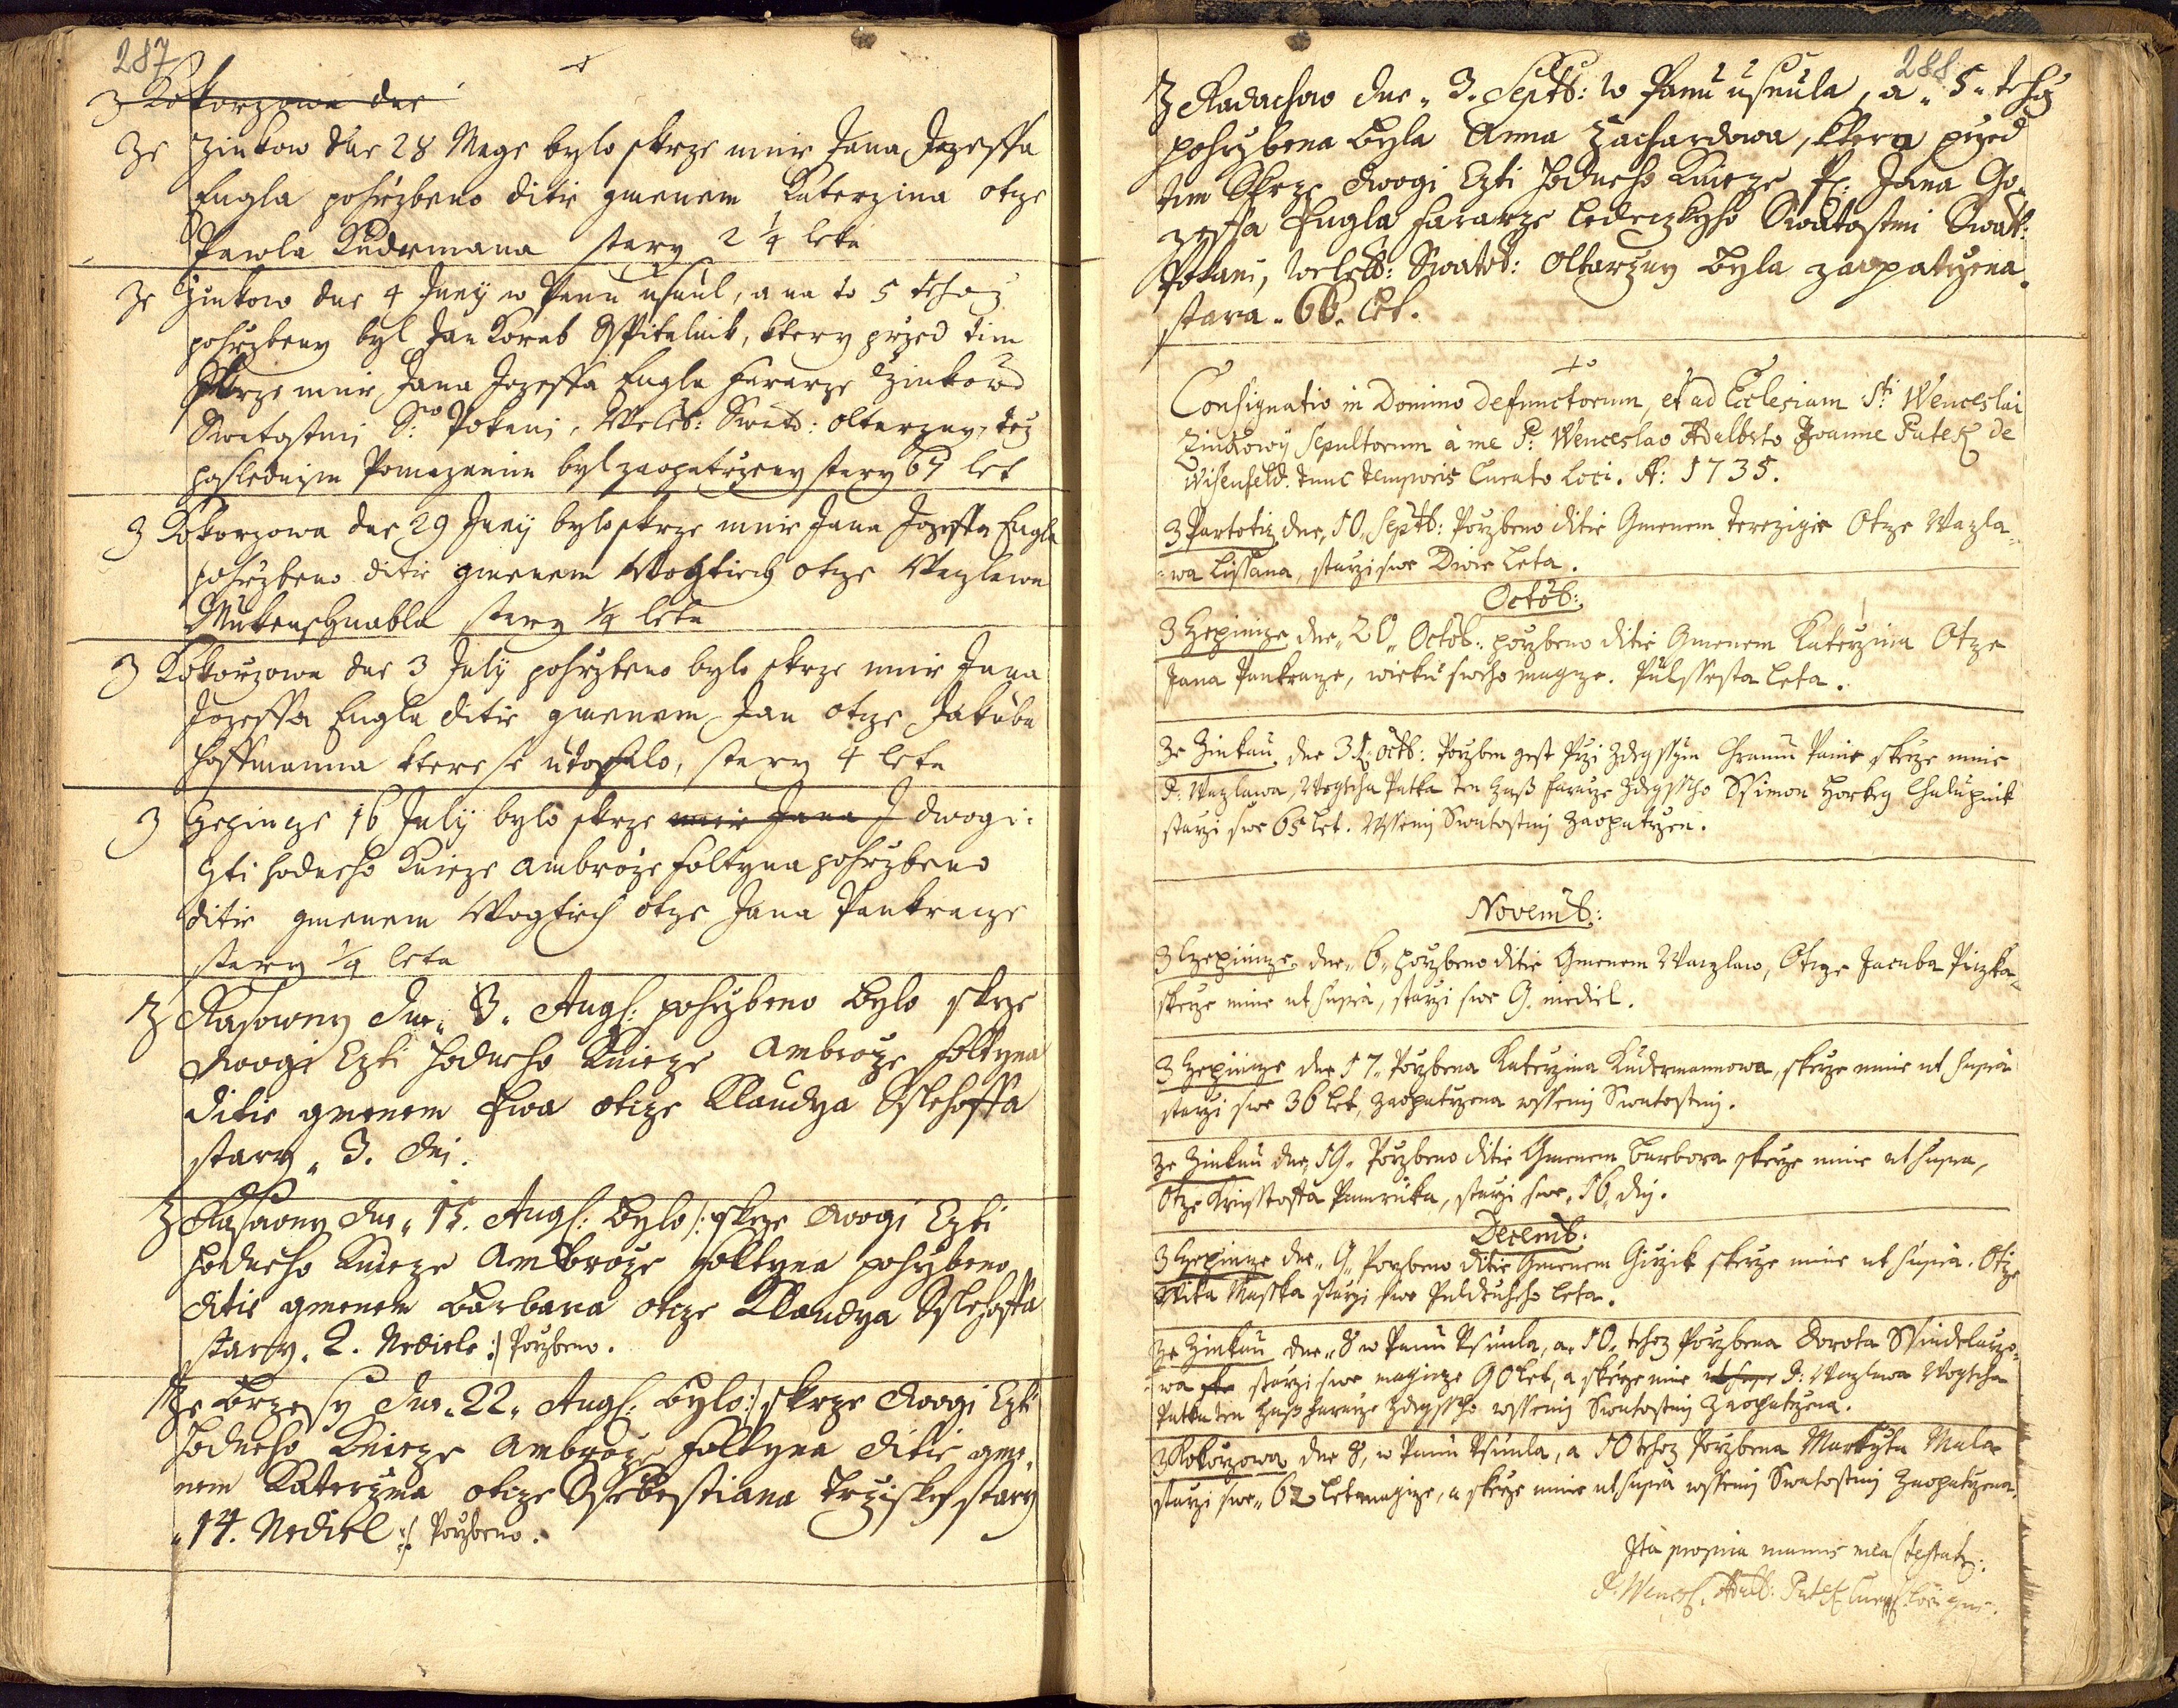 287
z Kokorzowa dne
Ze Zinkow dne 28 Mage bylo skrze mnie Jana Jozeffa
Engla pohrzbeno ditie gmenem Katerzina otze
Pawla Kudrmana stary 2 1/4 leta
Ze Zinkow dne 4 Juny w Panu usnul, a na to 5 tehoz
pohrzbeny byl Jan Korab Sspitalnik, ktery przed tim
skrze mnie Jana Jozeffa Engla Fararze Zinkow:
Swatostmi S: Pokani, Weleb: Swat: oltarzny, tez
poslednim Pomazanim byl zaopatrzeny stary 67 let
Z Kokorzowa dne 29 Juny bylo skrze mnie Jana Jozeffa Engla
pohrzbeno ditie gmenem Wogtiech otze Waczlawa
Mukenschnabla stary 1/4 leta
Z Kokorzowa dne 3 July pohrzbeno bylo skrze mnie Jana
Jozeffa Engla ditie gmenem Jan otze Jakuba
Hoffmanna ktere se utopilo, stary 4 leta
Z Czepincze 16 July bylo skrze mnie Jana J dwogi:
Czti hodneho Knieze Ambroze Foltyna pohrzbeno
ditie gmenem Wogtiech otze Jana Pankracze
stary 1/4 leta
Z Rasowny dne 8. Aug: pohrzbeno bylo skrze
dwogi Czti hodneho Knieze Ambroze Foltyna
ditie gmenem Ewa otcze Klaudya Sslehoffa
stary 3. dni.
Z Rasowny dne 15. Aug: bylo /: skrze dwogi Czti
hodneho Knieze Ambroze Foltyna pohrzbeno
ditie gmenem Barbara otcze Klaudya Sslehoffa
stary 2. Nediele :/ Pohrzbeno.
Ze Brzesy dne 22. Aug: bylo :/ skrze dwogi Czti
hodneho Knieze Ambroze Foltyna ditie gme,
nem Katerzyna otcze Ssebestiana stary
14. Nediel :/ Pohrzbeno.
288
Z Radachow dne 3. Septb: w Panu usnula, a 5 tehoz
pohrzbena byla Anna Zachardowa, ktera przed
tim skrze dwogi Czti hodneho Knieze P: Jana Jo-
zeffa Engla Fararze Ledeczkyho Swatostmi Swat:
Pokani, Weleb: Swatos: Oltarzny byla zaopatrzena.
stara 66. let.
Consignatio in Domino defunctorum, et ad Ecclesiam Sti Wenceslai
Zinkowÿ Sepultorum à me P: Wenceslao Adalberto Joanne Patek de
Wisenfeld. tunc temporis Curato Loci. A: 1735.
Z Partotiz dne, 10. Septb: Porzbeno ditie Gmenem Terezigie Otze Wazla-
wa Lissana, starzi swe Dwie Leta.
Octob:
Z Czepincze dne 20. Octob: porzbeno ditie Gmenem Katerzina Otze
Jana Pankracze, wieku sweho magicze. Pul ssesta leta.
Ze Zinkau, dne 31. octb: Porzben gest Przi Zdegssim Chramu Panie skrze mnie
P: Wazlawa Wogtiecha Patka ten Zass Fararze Zdegssiho Ssimon Horkey Chalupnik
starzi swe 65 let. Wssemi Swatostmi zaopatrzen.
Novemb:
Z Czepincze, dne 6. porzbeno ditie Gmenem Waczlaw, Otcze Jacuba Piczka
skrze mnie ut supra, starzi swe 9. nediel.
Z Czepincze dne 17. Porzbena Katerzina Kudrmannowa, skrze mnie ut supra
starzi swe 36 let, zaopatrzena wssemi Swatostmi.
Ze Zinkau dne 19. Porzbeno ditie Gmenem Barbora skrze mnie ut supra,
Otze Krisstoffa Pamruka, starzi swe, 16, dny.
Decemb:
Z Czepincze dne 9. Porzbeno ditie Gmenem Girzik skrze mnie ut supra. Otze
Wita Masska starzi swe Puldruheho leta.
Ze Zinkau dne 8 w Panu Usnula, a 10. tehoz Porzbena Dorota Sspindelarzo-
wa starzi swe magicze 90 let, a skrze mnie ut supra P: Wazlawa Wogtiecha
Patka ten Zass Fararze Zdegssiho wssemi Swatostmi Zaopatrzena.
Z Kokorzowa dne 8, w Panu Usnula, a 10 tehoz Porzbena Markyta Mala
starzi swe 62 let magicze, a skrze mnie ut supra wssemi Swatostmi Zaopatrzena.
Ita propria manus mea testatur:
P: Wencesl: Adalb: Patek Curat: Loci